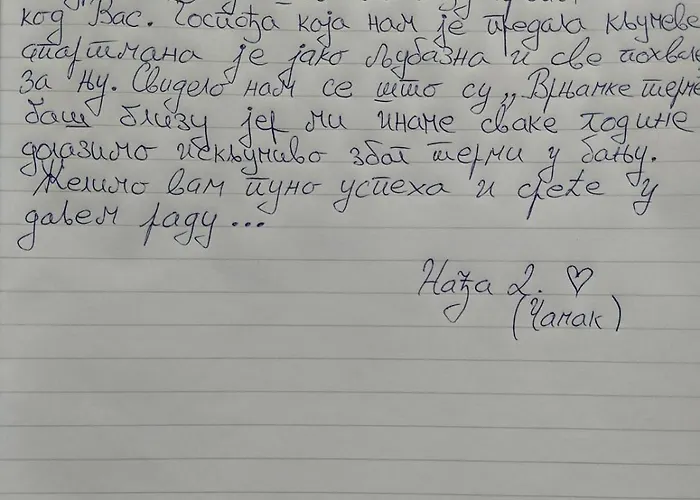 код Вас. Госпођа која нам је предала кључеве
апартмана је јако љубазна и све похвале
за њу. Свидело нам се што су „Врњачке терме
баш близу јер ми иначе сваке године
долазимо искључиво због терми у бању.
Желимо вам пуно успеха и среће у
даљем раду...
Нађа 2. ♡
(Чачак)